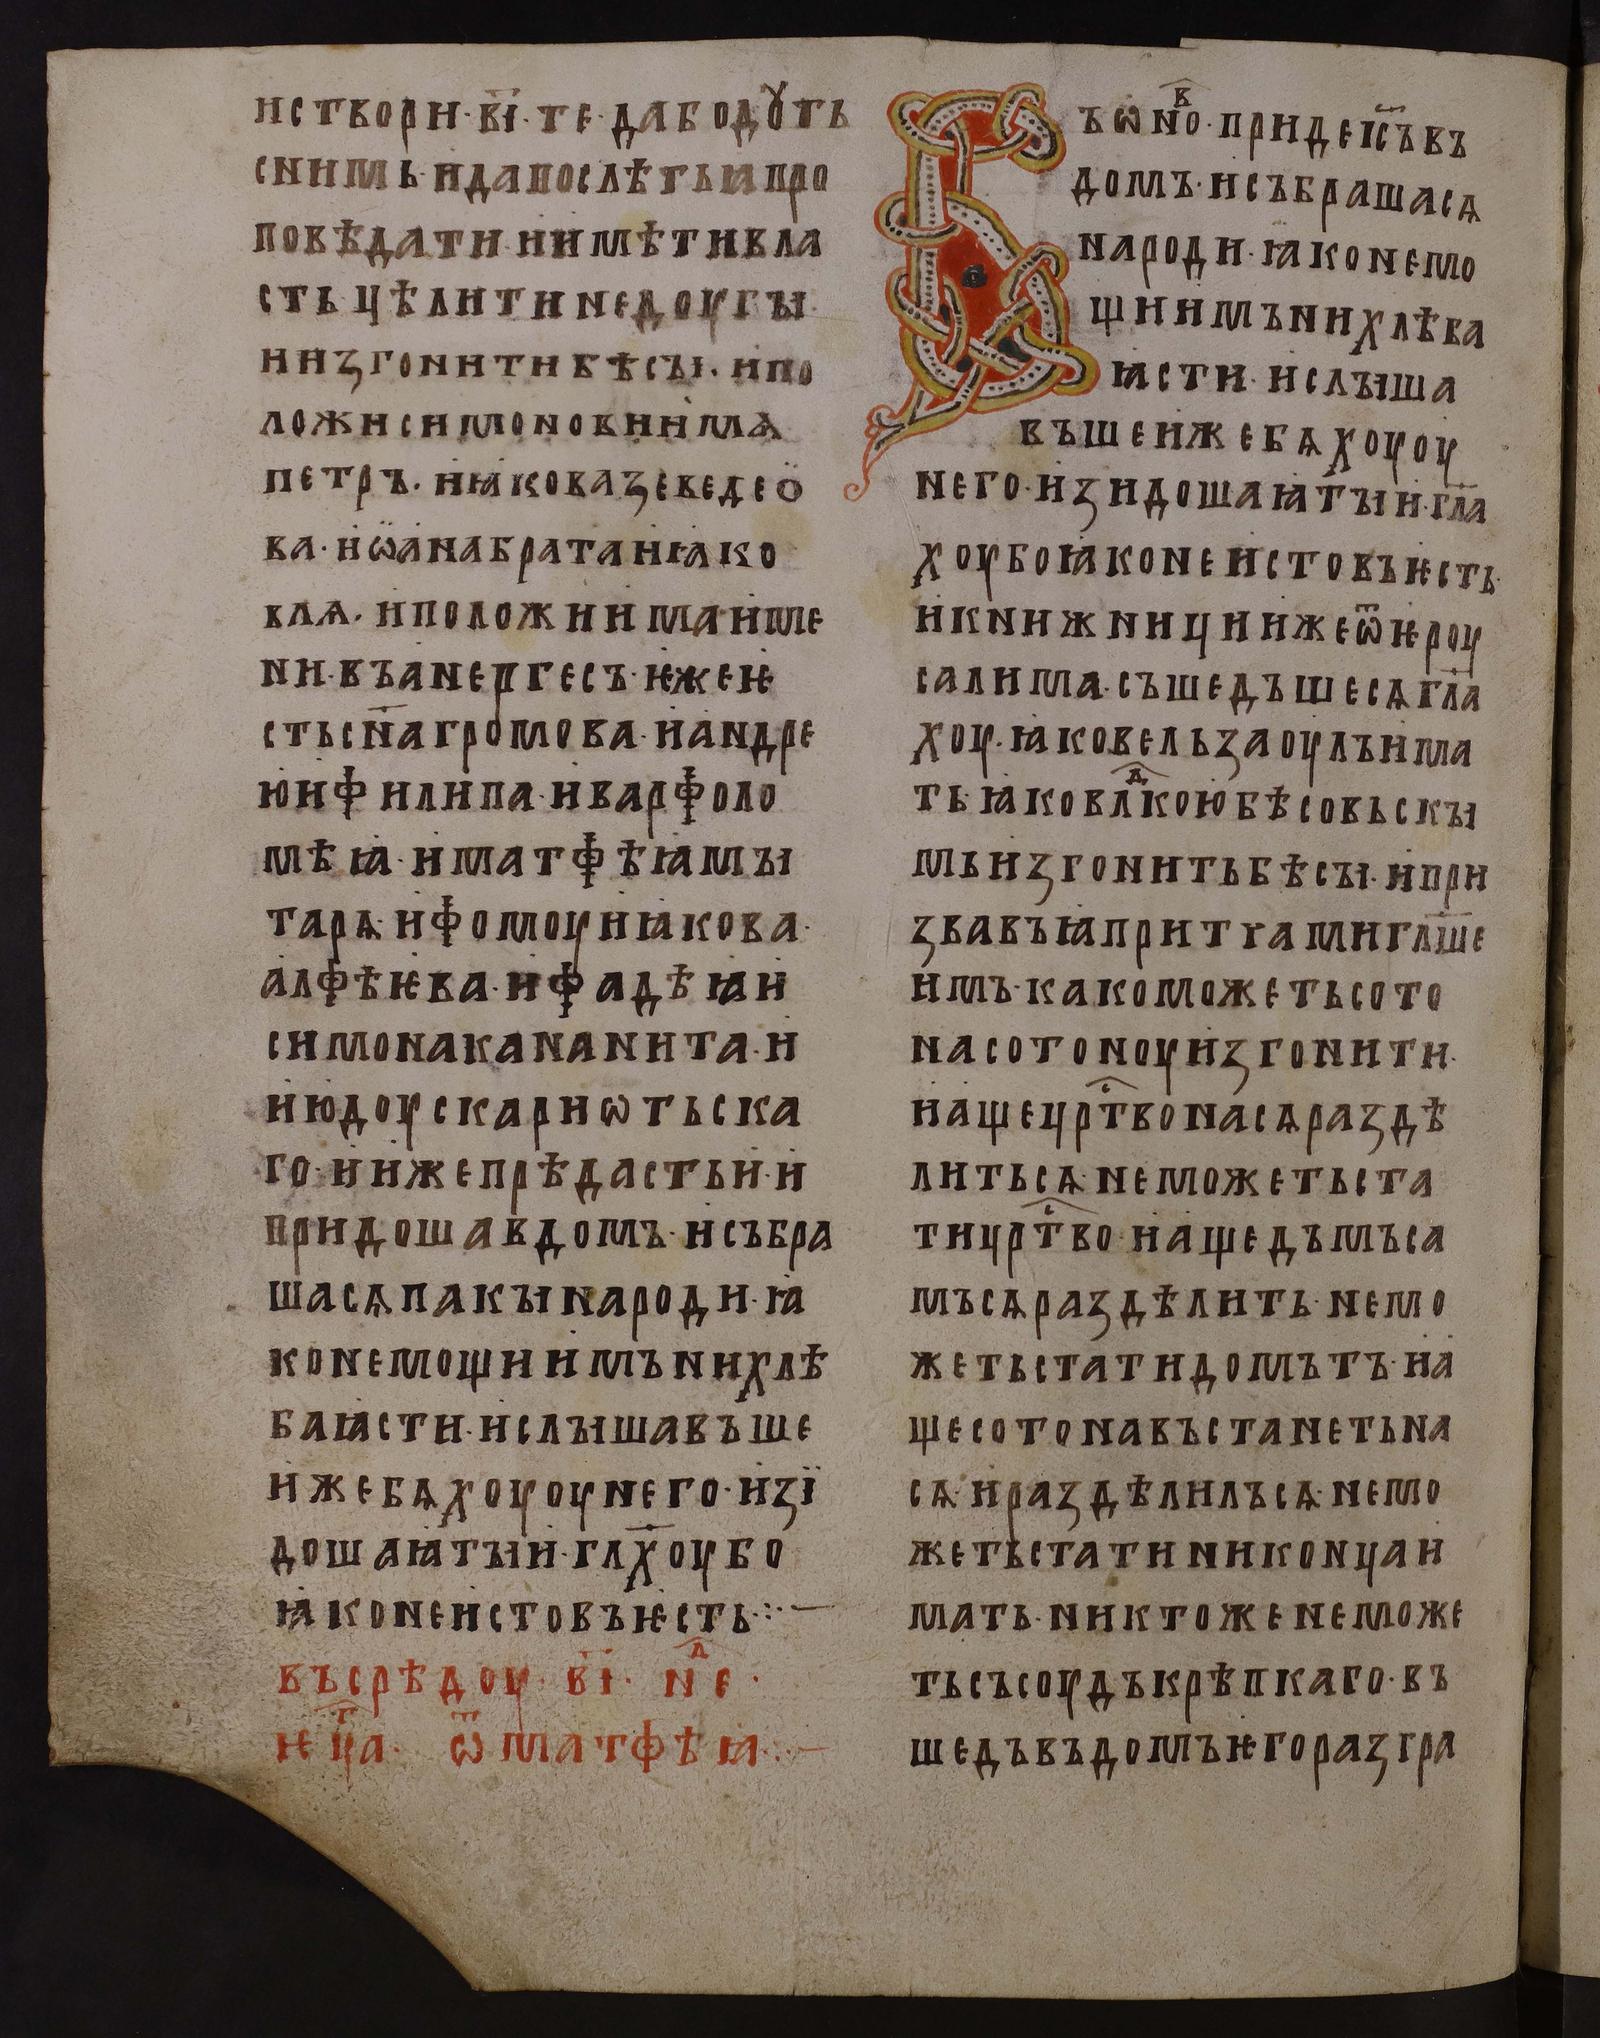 и створи · в҃і · те · да бодꙋть
с нимь · и да послѣть ꙗ про
повѣдати · и имѣти вла
сть цѣлити недоугꙑ
и изгонити бѣсꙑ · и по
ложи симонови имѧ
петръ · и ꙗкова зеведео
ва · и ѡана брата ꙗко
влѧ · и положи има име
ни · въанергесъ · ѥже ѥ
сть сн҃а громова · и андре
ю и филипа · и варфоло
мѣꙗ · и матфѣꙗ мꙑ
тарѧ · и фомоу и ꙗкова ·
алфѣѥва · и фадѣꙗ и
симона кананита · и
июдоу скариѡтьска
го · и иже прѣдасть и · и
придоша в домъ · и събра
шасѧ пакꙑ народи · ꙗ
ко не мощи имъ ни хлѣ
ба ꙗсти · и слꙑшавъше
иже бѧхоу оу него · изї
доша ꙗтꙑ и · гл҃хоу бо
ꙗко неистовъ ѥсть ·:·—
въ срѣдоу · в҃і · нⷣе ·
ѥцⷢа · ѿ матфѣꙗ ·:·—
Въ ѡнⷡо · приде іс҃ъ въ
домъ · и събрашасѧ
народи · ꙗко не мо
щи имъ ни хлѣва
ꙗсти · и слꙑша
въше иже бѧхоу оу
него · изидоша ꙗтꙑ и · гл҃а
хоу бо ꙗко неистовъ ѥсть ·
и книжници иже ѿ ѥроу
салима · съшедъше сѧ гл҃а
хоу · ꙗко вельзаоулъ има
ть · ꙗко влⷣкою бѣсовьскꙑ
мь изгонить бѣсꙑ · и при
звавъ ꙗ притчами гл҃ше
имъ · како можеть сото
на сотоноу изгонити ·
и аще црⷭтво на сѧ раздѣ
литьсѧ · не можеть ста
ти црⷭтво · и аще дъмъ са
мъ сѧ раздѣлить · не мо
жеть стати домъ тъ · и а
ще сотона въстанеть на
сѧ · и раздѣлилъсѧ · не мо
жеть стати ни конца и
мать · никтоже не може
ть съсоудъ крѣпкаго · въ
шедъ въ домъ ѥго разгра